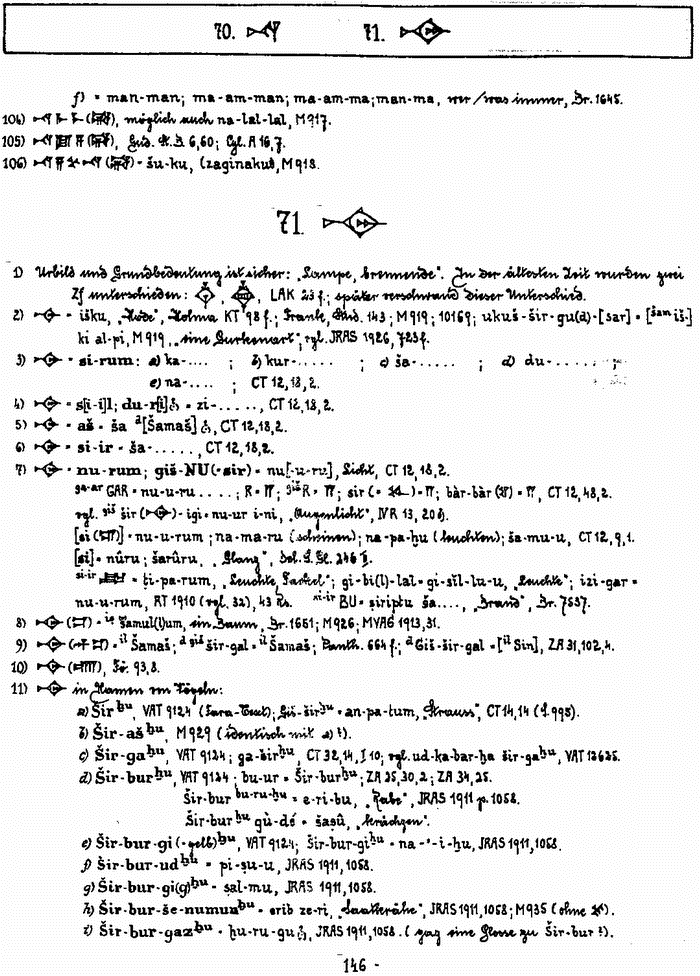 70. 71.
f) = man-man; ma-am-man; ma-am-ma; man-ma, wer/was immer, Br. 1645.
104) möglich auch na-lal-lal, M 917.
105) Gud. St. B 6,60; Cyl. A 16,7.
106) = šu-ku, (zaginakuš), M 918.
71.
1) Urbild und Grundbedeutung ist sicher: „Lampe, brennende“. In der ältesten Zeit wurden zwei
Zf unterschieden: , , LAK 23 f.; später verschwand dieser Unterschied.
2) = išku, „Hode“, Holma KT 98 f.; Frank, Stud. 143; M 919; 10169; ukuš-šir-gu(d)-[sar] = [šam iš-]
ki al-pi, M 919, „eine Gurkenart“, vgl. JRAS 1926, 723 f.
3) = si-rum: a) ka-.... ; b) kur-..... ; c) ša-..... ; d) du-...... ;
e) na-.... ; CT 12,18,2.
4) = s[i-i]l; du-r[i] = zi-....., CT 12,18,2.
5) = aš = ša d[Šamaš], CT 12,18,2.
6) = si-ir = ša-....., CT 12,18,2.
7) = nu-rum; giš-NU(=sir) = nu[-u-ru], Licht, CT 12,18,2.
ga-ar GAR = nu-u-ru ....; R = ; giš R = ; sir (= ) = ; bàr-bàr () = , CT 12,48,2.
vgl. giš šir () - igi = nu-ur i-ni, „Augenlicht“, IV R 13, 20 b.
[si ()] = nu-u-rum; na-ma-ru (scheinen); na-pa-ḫu (leuchten); ša-mu-u, CT 12,9,1.
[si] = nûru; šarûru, „Glanz“, Del. S. Gl. 246 f.
si-ir = ṭi-pa-rum, „Leuchte, Fackel“; gi-bi(l)-lal = gi-sîl-lu-u, „Leuchte“; izi-gar =
nu-u-rum, RT 1910 (vgl. 32), 43 Rs. si-ir BU = ṣiriptu ša...., „Brand“, Br. 7537.
8) () = iṣ Šamul(l)um, ein Baum, Br. 1651; M 926; MVAG 1913, 31.
9) () = il Šamaš; d giš šir-gal = il Šamaš; Panth. 664 f.; d Giš-šir-gal = [il Sin], ZA 31,102,4.
10) (), 93,8.
11) in Namen von Vögeln:
a) Šir ḫu, VAT 9124 (Fara-Text); Giš-šir ḫu = an-pa-tum, „Strauss“, CT 14,14
b) Šir-aš ḫu, M 929 (identisch mit a)?).
c) Šir-ga ḫu, VAT 9124; ga-šir ḫu, CT 32,14, I 10; vgl. ud-ka-bar-ḫa šir-ga ḫu, VAT 12625.
d) Šir-bur ḫu, VAT 9124; bu-ur = Šir-bur ḫu; ZA 25,30,2; ZA 34,25.
Šir-bur bu-ru-ḫu = e-ri-bu, „Rabe“, JRAS 1911 p. 1058.
Šir-bur ḫu gù-dé = šasû, „krächzen“.
e) Šir-bur-gi (=gelb) ḫu, VAT 9124; Šir-bur-gi ḫu = na-'-i-ḫu, JRAS 1911, 1058.
f) Šir-bur-ud ḫu = pi-ṣu-u, JRAS 1911, 1058.
g) Šir-bur-gi(g) ḫu = ṣal-mu, JRAS 1911, 1058.
h) Šir-bur-še-numun ḫu = erib ze-ri, „Saatkrähe“, JRAS 1911, 1058; M 935 (ohne ).
i) Šir-bur-gaz ḫu = ḫu-ru-gu, JRAS 1911, 1058. (gaz eine Glosse zu Šir-bur?).
146 -